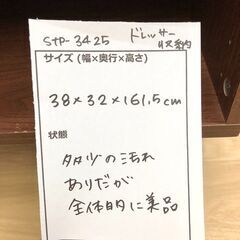 StP-3425
ドレッサー
収納
サイズ (幅×奥行×高さ)
38×32×161.5cm
状態
多少の汚れ
ありだが
全体的に美品